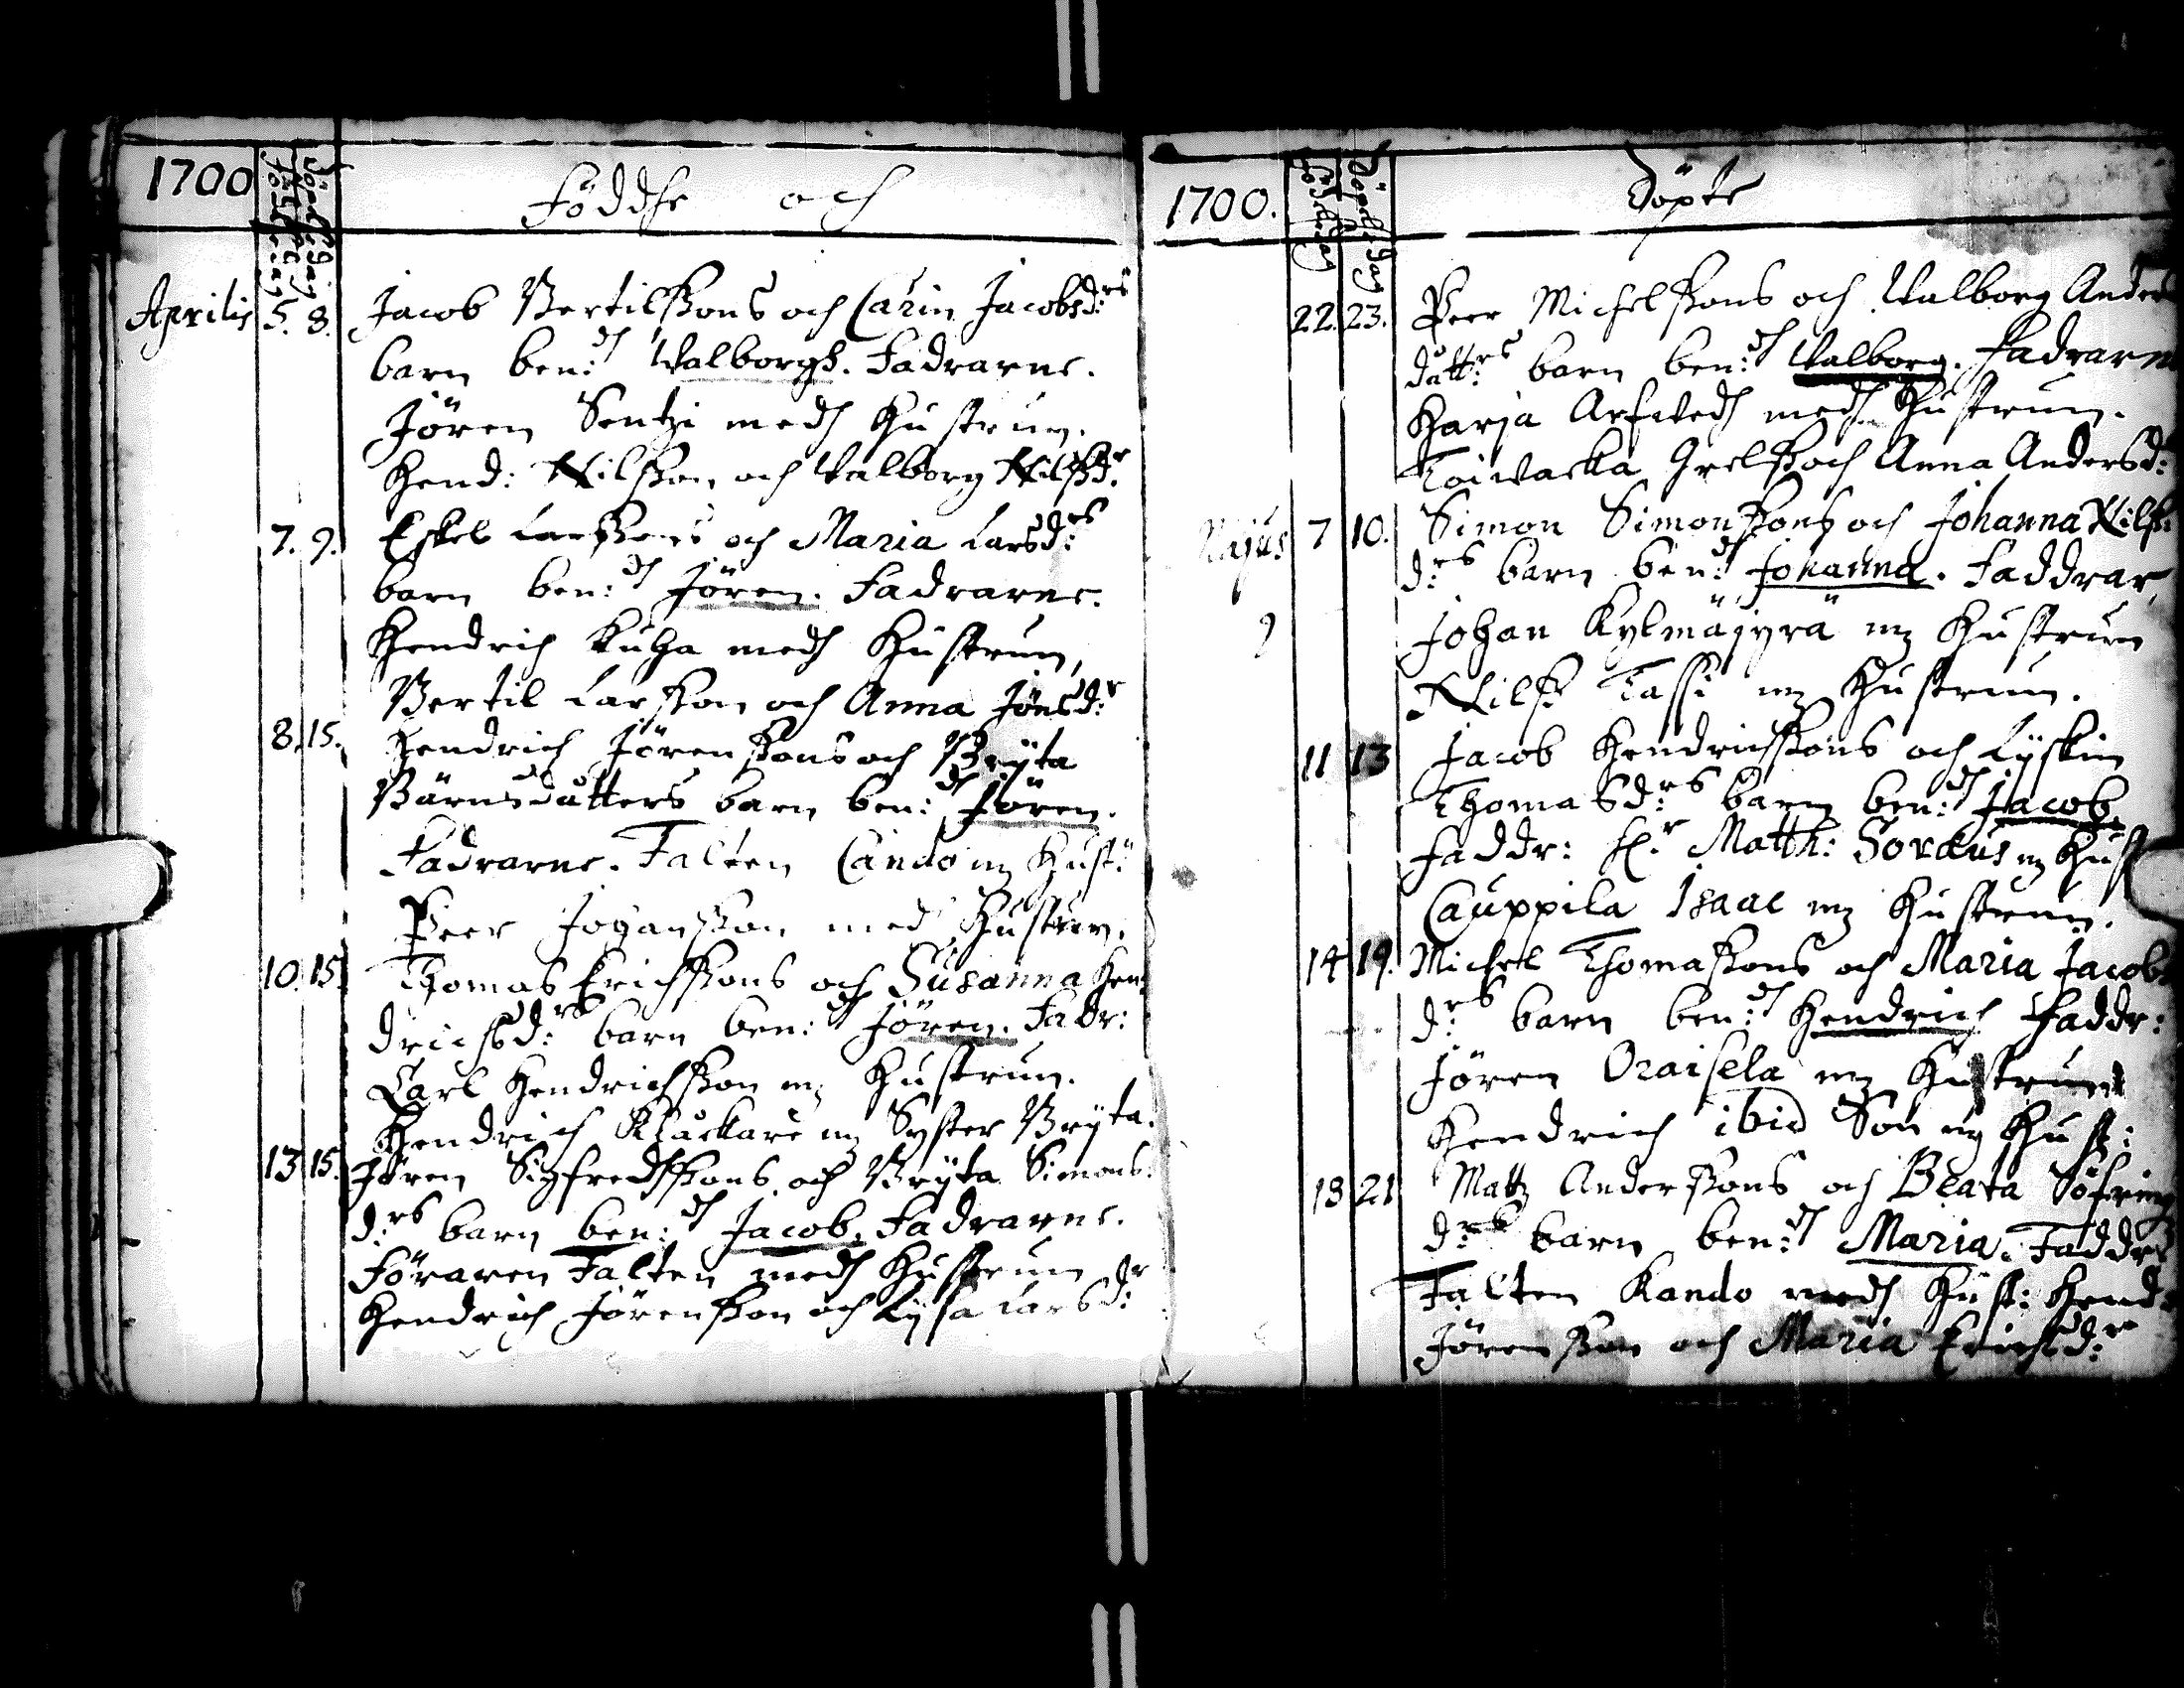 1700 Födelse dag Döpelse dag Föddse och
Aprilis 5. 8. Jacob Bertilssons och Carin Jacobsd:rs
barn ben:d Walborgh. Fadrarne.
Jören Sentzi medh Hustrun.
Hend: Nilsson och Walborg Nilsd:r
7. 9. Eskel Larssons och Maria Larsd:rs
barn ben:d Jören. Fadrarne.
Hendrich Kuha medh Hustrun,
Bertil Larsson och Anna Jönsd:r
8. 15. Hendrich Jörenssons och Bryta
Bärnsdåtters barn ben:d Jören.
Fadrarne. Falten Cando m Hust:
Peer Johansson med Hustrun.
10. 15. Thomas Erichssons och Susanna Hen
drichsd:rs barn ben:d Jören. Fadr:
Carl Hendrichsson m Hustrun.
Hendrich Kluckare m Syster Bryta.
13 15. Jören Sigfredssons och Bryta Simons
d:rs barn ben:d Jacob. Fadrarne.
Föraren Falten medh Hustrun
Hendrich Jörensson och Lysa Larsd:r
1700. Födelse dag Döpelse dag Döpte
22. 23. Peer Michelssons och Walborg Anders
dått:rs barn ben:d Walborg. Fadrarne
Harja Arfwedh medh Hustrun.
Toiwacka Grelss och Anna Andersd:
Majus 7 10. Simon Simonssons och Johanna Nils
d:rs barn ben:d Johanna. Faddrar,
Johan Kylmäjyrä m Hustrun
Nilss Tassi m Hustrun.
11 13 Jacob Hendrichssons och Lyskin
Thomasd:rs barn ben:d Jacob.
Faddr: H:r Matth: Soræus m Hust
Cauppila Isaac m Hustrun.
14 19. Michel Thomassons och Maria Jacobs
d:rs barn ben:d Hendrich Faddr:
Jören Oraisela m Hustrun
Hendrich ibid Son m Hust:
18 21 Matz Anderssons och Beata Söfrings
d:rs barn ben:d Maria. Faddr
Falten Kando medh Hust: Hend
Jörensson och Maria Erichsd:r